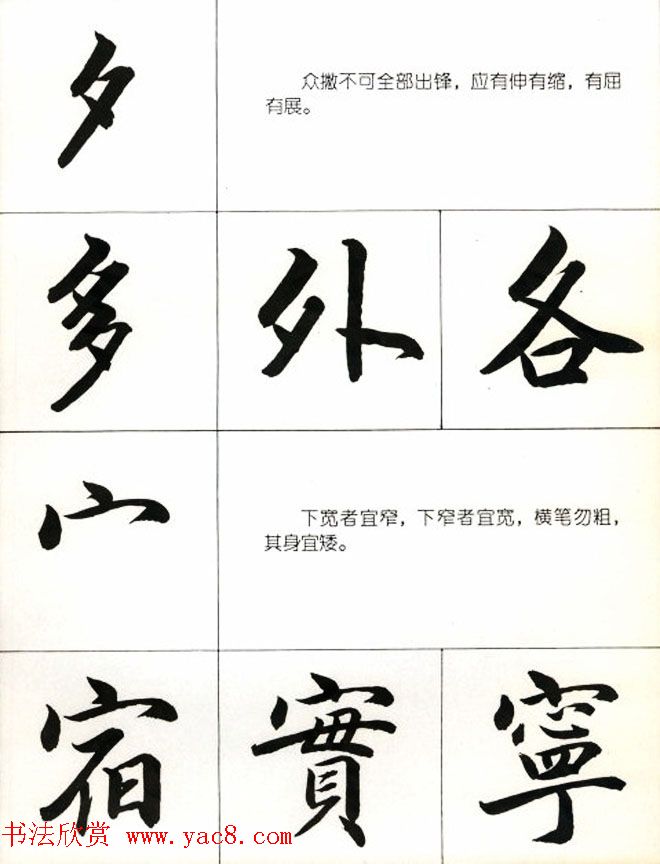 夕
众撇不可全部出锋，应有伸有缩，有屈
有展。
多 外 各
宀
下宽者宜窄，下窄者宜宽，横笔勿粗，
其身宜矮。
宿 實 寧
书法欣赏 www.yac8.com